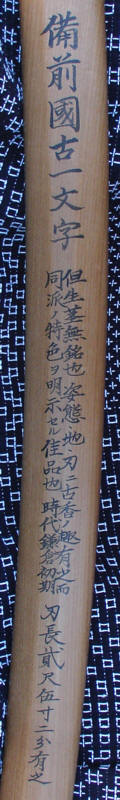 備前國古一文字
但生茎無銘也姿態地刃ニ古香ノ趣有之而
同派ノ特色ヲ明示セル佳品也時代鎌倉初期
刃長貳尺伍寸二分有之